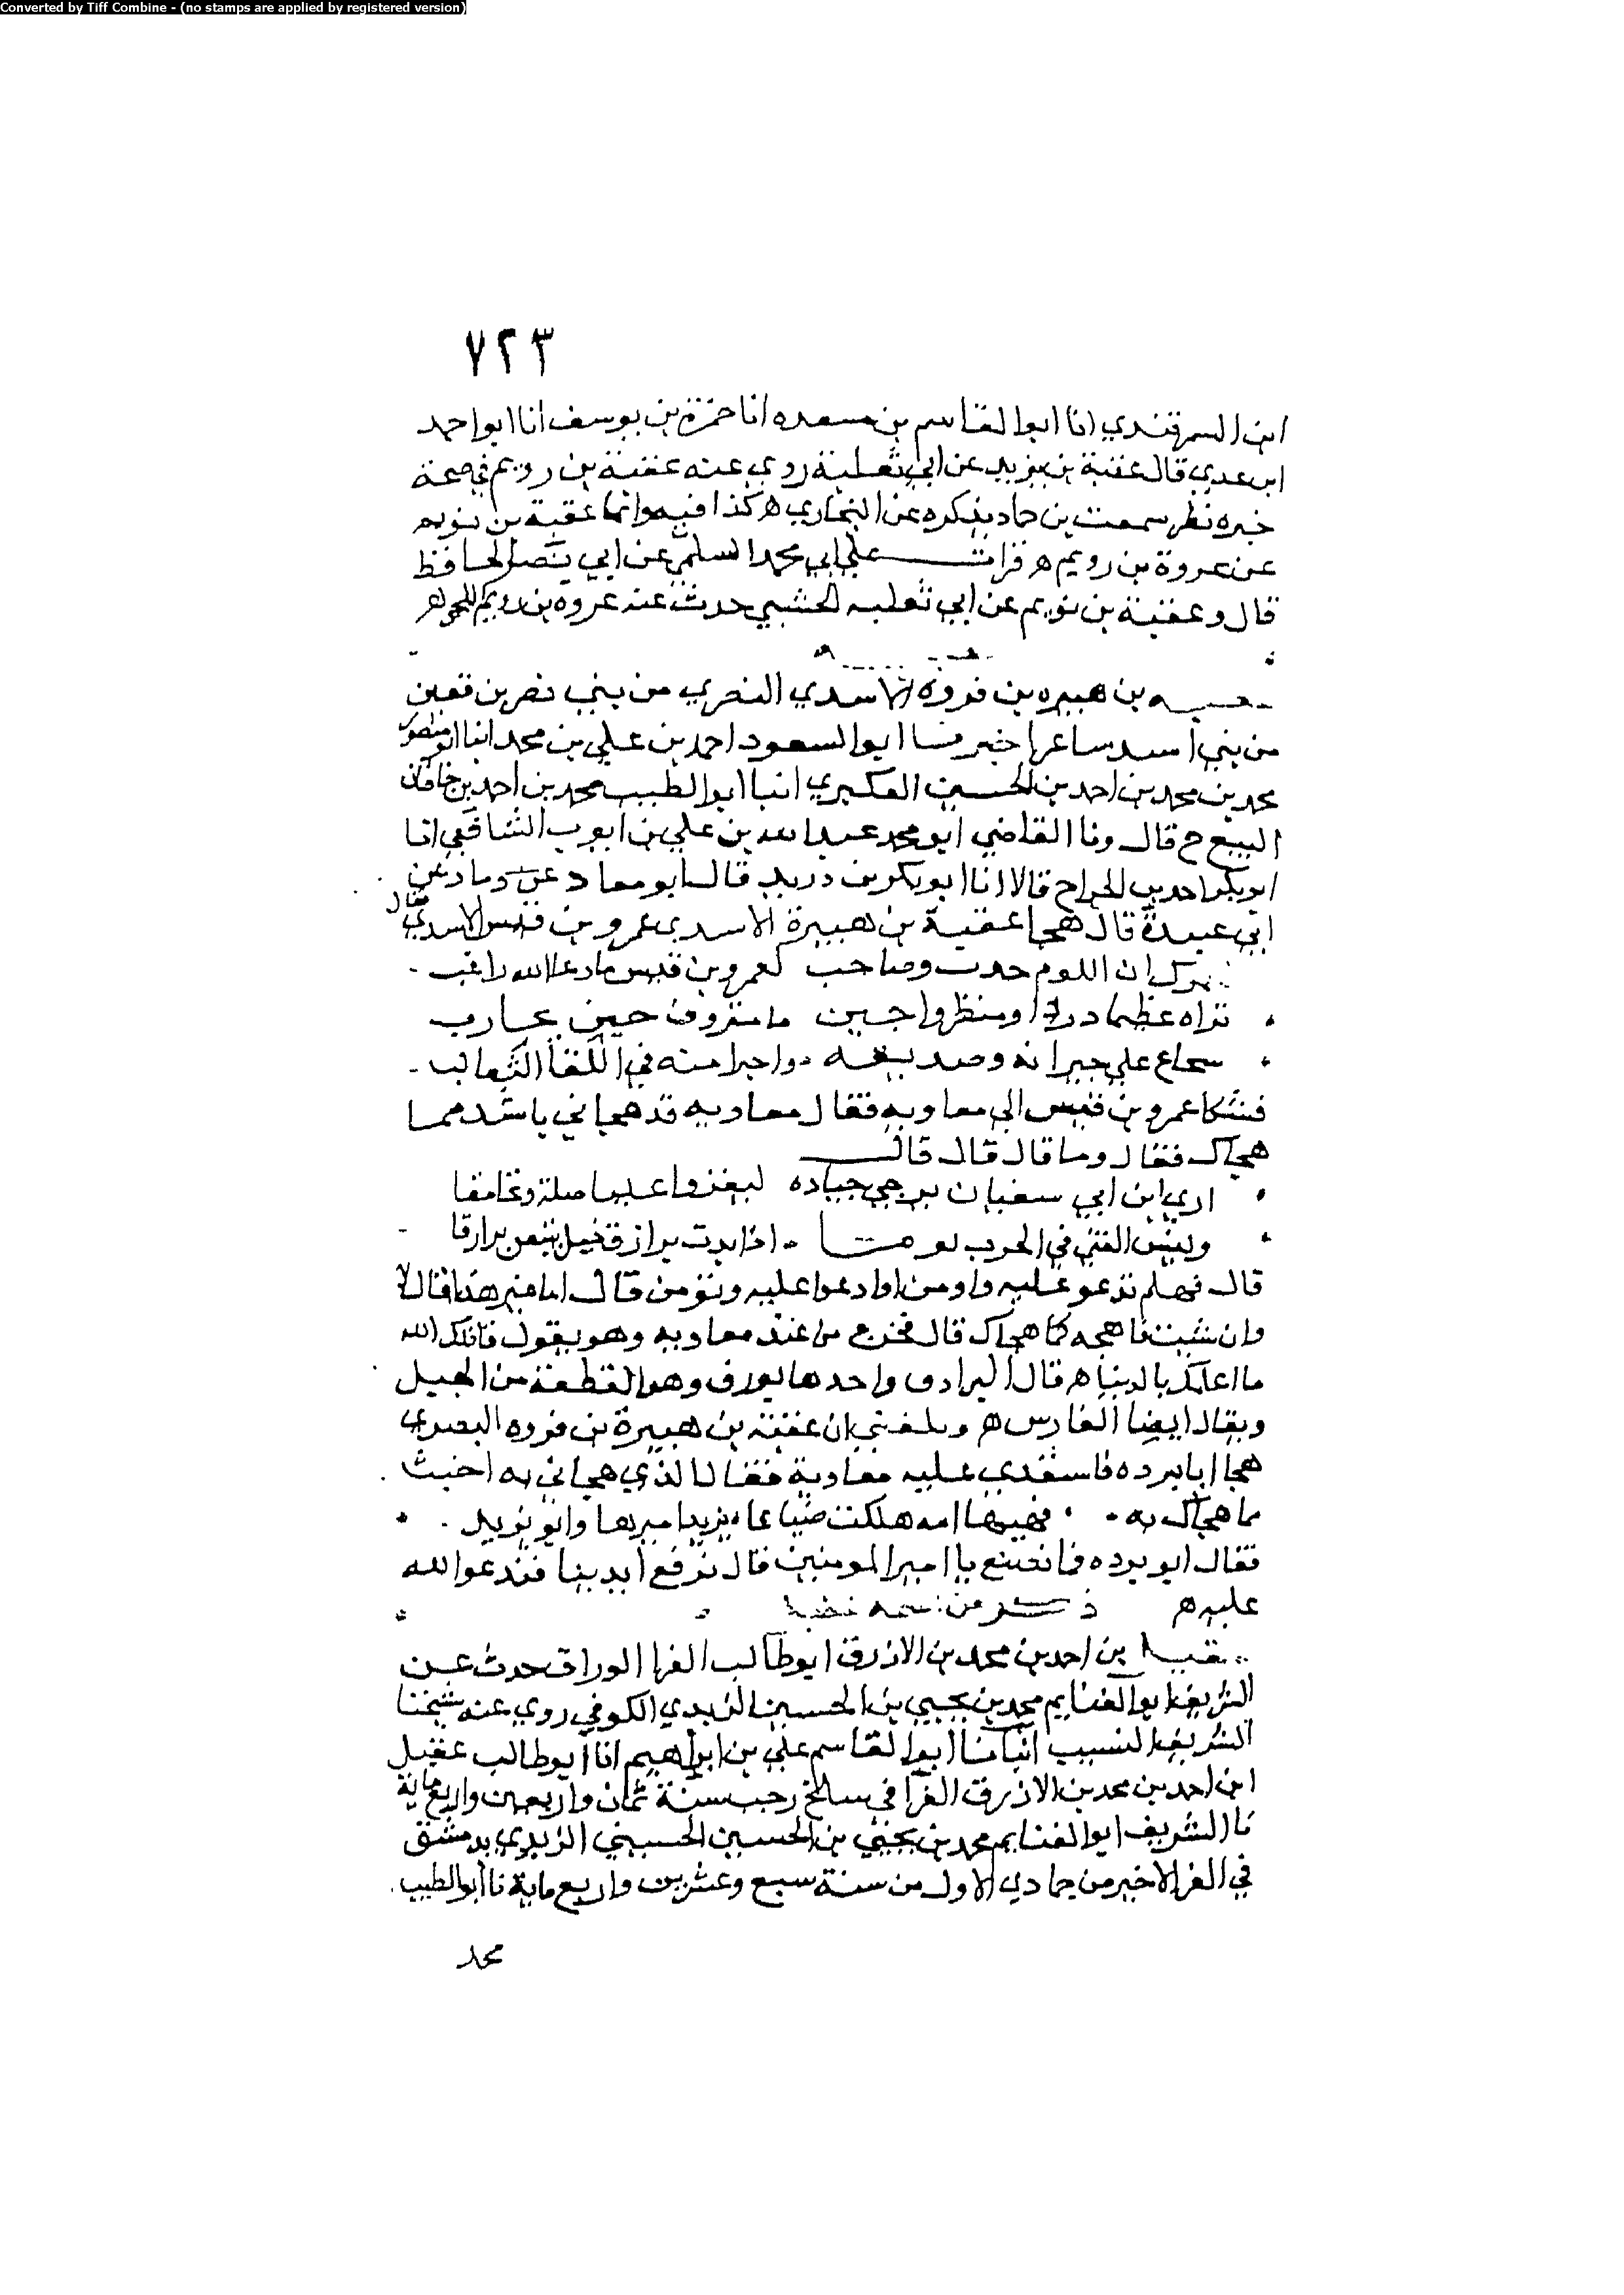 Converted by Tiff Combine - (no stamps are applied by registered version)
٧٢٣
ابن السمرقندي انا ابوا القاسم بن مسعده انا حمزة بن يوسف انا ابوا احمد
ابن عدي قال عقبة بن يزيد عن ابي ثعلبة روي عنه عقبة بن رويم في صحة
خبره نظر سمعت بن حماد يذكره عن البخاري ه كذا فيه وانما عقبة بن نويم
عن عروة بن رويم ه قرات علي ابي محمد السلمي عن ابي نصر الحافظ
قال وعقبة بن نويم عن ابي ثعلبه الخشني حدث عنه عروه بن رويم اللخمي ه
بن هبيره بن فروه الاسدي النصري من بني نصر بن قعين
من بني اسد ساعرا خبرنا ابوا السعود احمد بن علي بن محمد انبا ابو منصور
محمد بن محمد بن احمد بن الحسين العكبري انبا ابوا الطيب محمد بن احمد بن خاقان
البيع ح قال ونا القاضي ابو محمد عبد الله بن علي بن ايوب الشافعي انا
ابو بكر احمد بن الجراح قالا انا ابو بكر بن دريد قال ابو معاد عن دماد عن
ابي عبيدة قال هجا عقيبة بن هبيرة الاسدي عمرو بن قيس الاسدي فقال
ان اللوم حدث وصاحب لعمرو بن قيس ما دعا الله راغب
تراه عظيما ومنظروا جبين ما منزوف حين يحارب
سجاع علي جيرانه وصديقه واجبرا منه في اللقا الثعالب
فشكا عمرو بن قيس الي معاويه فقال معاويه قد هجاني باشد مما
هجاك فقال وما قال قال قال
اري ابن ابي سفيان يرجي جياده ليغزوا عليا ضلة وتحامقا
وليس الفتي في الحرب اذا بدت برازق خيل يتبعن برازقا
قال فهلم ندعو عليه واومن اوا دعوا عليه ونومن قال اما غير هذا قال لا
وان شيت فاهجه كما هجاك قال فخرج من عند معاويه وهو يقول قاتلك الله
ما اعلمك بالدنيا ه قال البرازق واحدها بورق وهو القطعة من الخيل
ويقال ايضا الفارس ه وبلغني ان عقيبة بن هبيرة بن فروه البصري
هجا ابا برده فاستعدي عليه معاوية فقال الذي هجاني به اخبث
مما هجاك به فهبها امه هلكت ضياعا يزيد اميرها وابو يزيد
فقال ابو برده فما نصنع يا امير المومنين قال نرفع ايدينا فندعوا الله
عليه ه ذكر من اسمه
بن احمد بن محمد بن الازرق ابو طالب الفرا الوراق حدث عن
الشريف ابوا الغنايم محمد بن يحيي بن الحسين الزيدي الكوفي روي عنه شيخنا
الشريف النسيب انبانا ابوا القاسم علي بن ابراهيم انا ابو طالب عقيل
ابن احمد بن محمد بن الازرق الفرا في سلخ رجب سنة ثمان واربعين واربع ماية
نا الشريف ابوا الغنايم محمد بن يحيي بن الحسين الحسيني الزيدي بدمشق
في العشر الاخير من جمادي الاول من سنة سبع وعشرين واربع ماية نا ابو الطيب
محمد